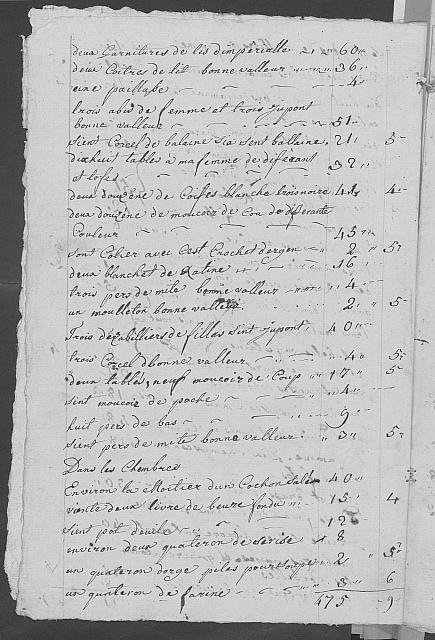 deux garnitures de lis d'imperialle 60
deux Coitres de lit bonne valleur 36
eine paillasse 4
trois abis de femme et trois jupont
bonne valleur 51
sient Corcel de balaine sia sent ballaine 21 5
dixhuit tables a ma femme de diferant
et tofes 32
deux douzene de Coiffes blanche troisnoire 41 4
deux douzene de moucoir de Cou de diferante
Couleur 45
sont Colier avec Cest Crochet dergen 2 5
deux blanchet de Ratine 16
trois pers de mite bonne valleur 4
un moulleton bonne valleur 2 5
Trois dezabilliers de filles sint jupont 40
trois Corcel d bonne valleur 4 5
deux tables, neuf moucoir de Coup 17 5
sint moucoir de poche 4
huit pers de bas 9
sient pers de mite bonne valleur 3 5
Dans les Chembres
Environ la Moitier dun Cochon salle 40
viente deux livre de beure fondu 15 4
sint pot deuile 12
environ deux quateron de serise 8
un quateron dorge piles pour soupe 2 5
un quateron de farine 3 6
475 9